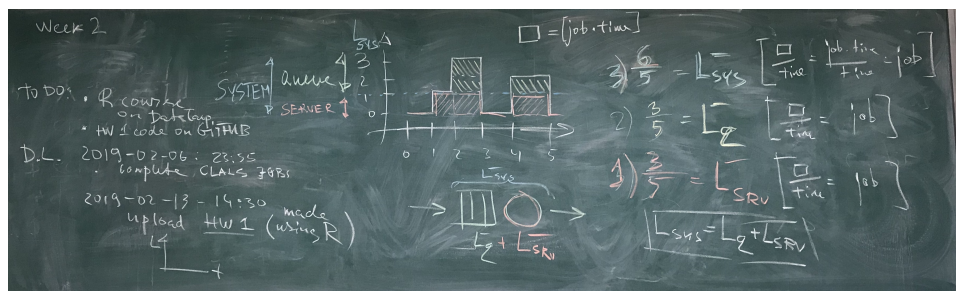 Week 2
TO DO:
• R course
on DataCamp
• HW1 code on GITHUB
D.L. 2019-02-06: 23:55
• complete CLASS JOBS
2019-02-13 - 14:30
upload HW1 (made using R)
L
t
SYSTEM
queue
SERVER
L sys
3
2
1
0
0 1 2 3 4 5
□ = [job·time]
Lsys
Lq + LSRV
3) 6/5 = Lsys [□/time = job·time/time = job]
2) 3/5 = Lq [□/time = job]
1) 3/5 = LSRV [□/time = job]
Lsys = Lq + LSRV